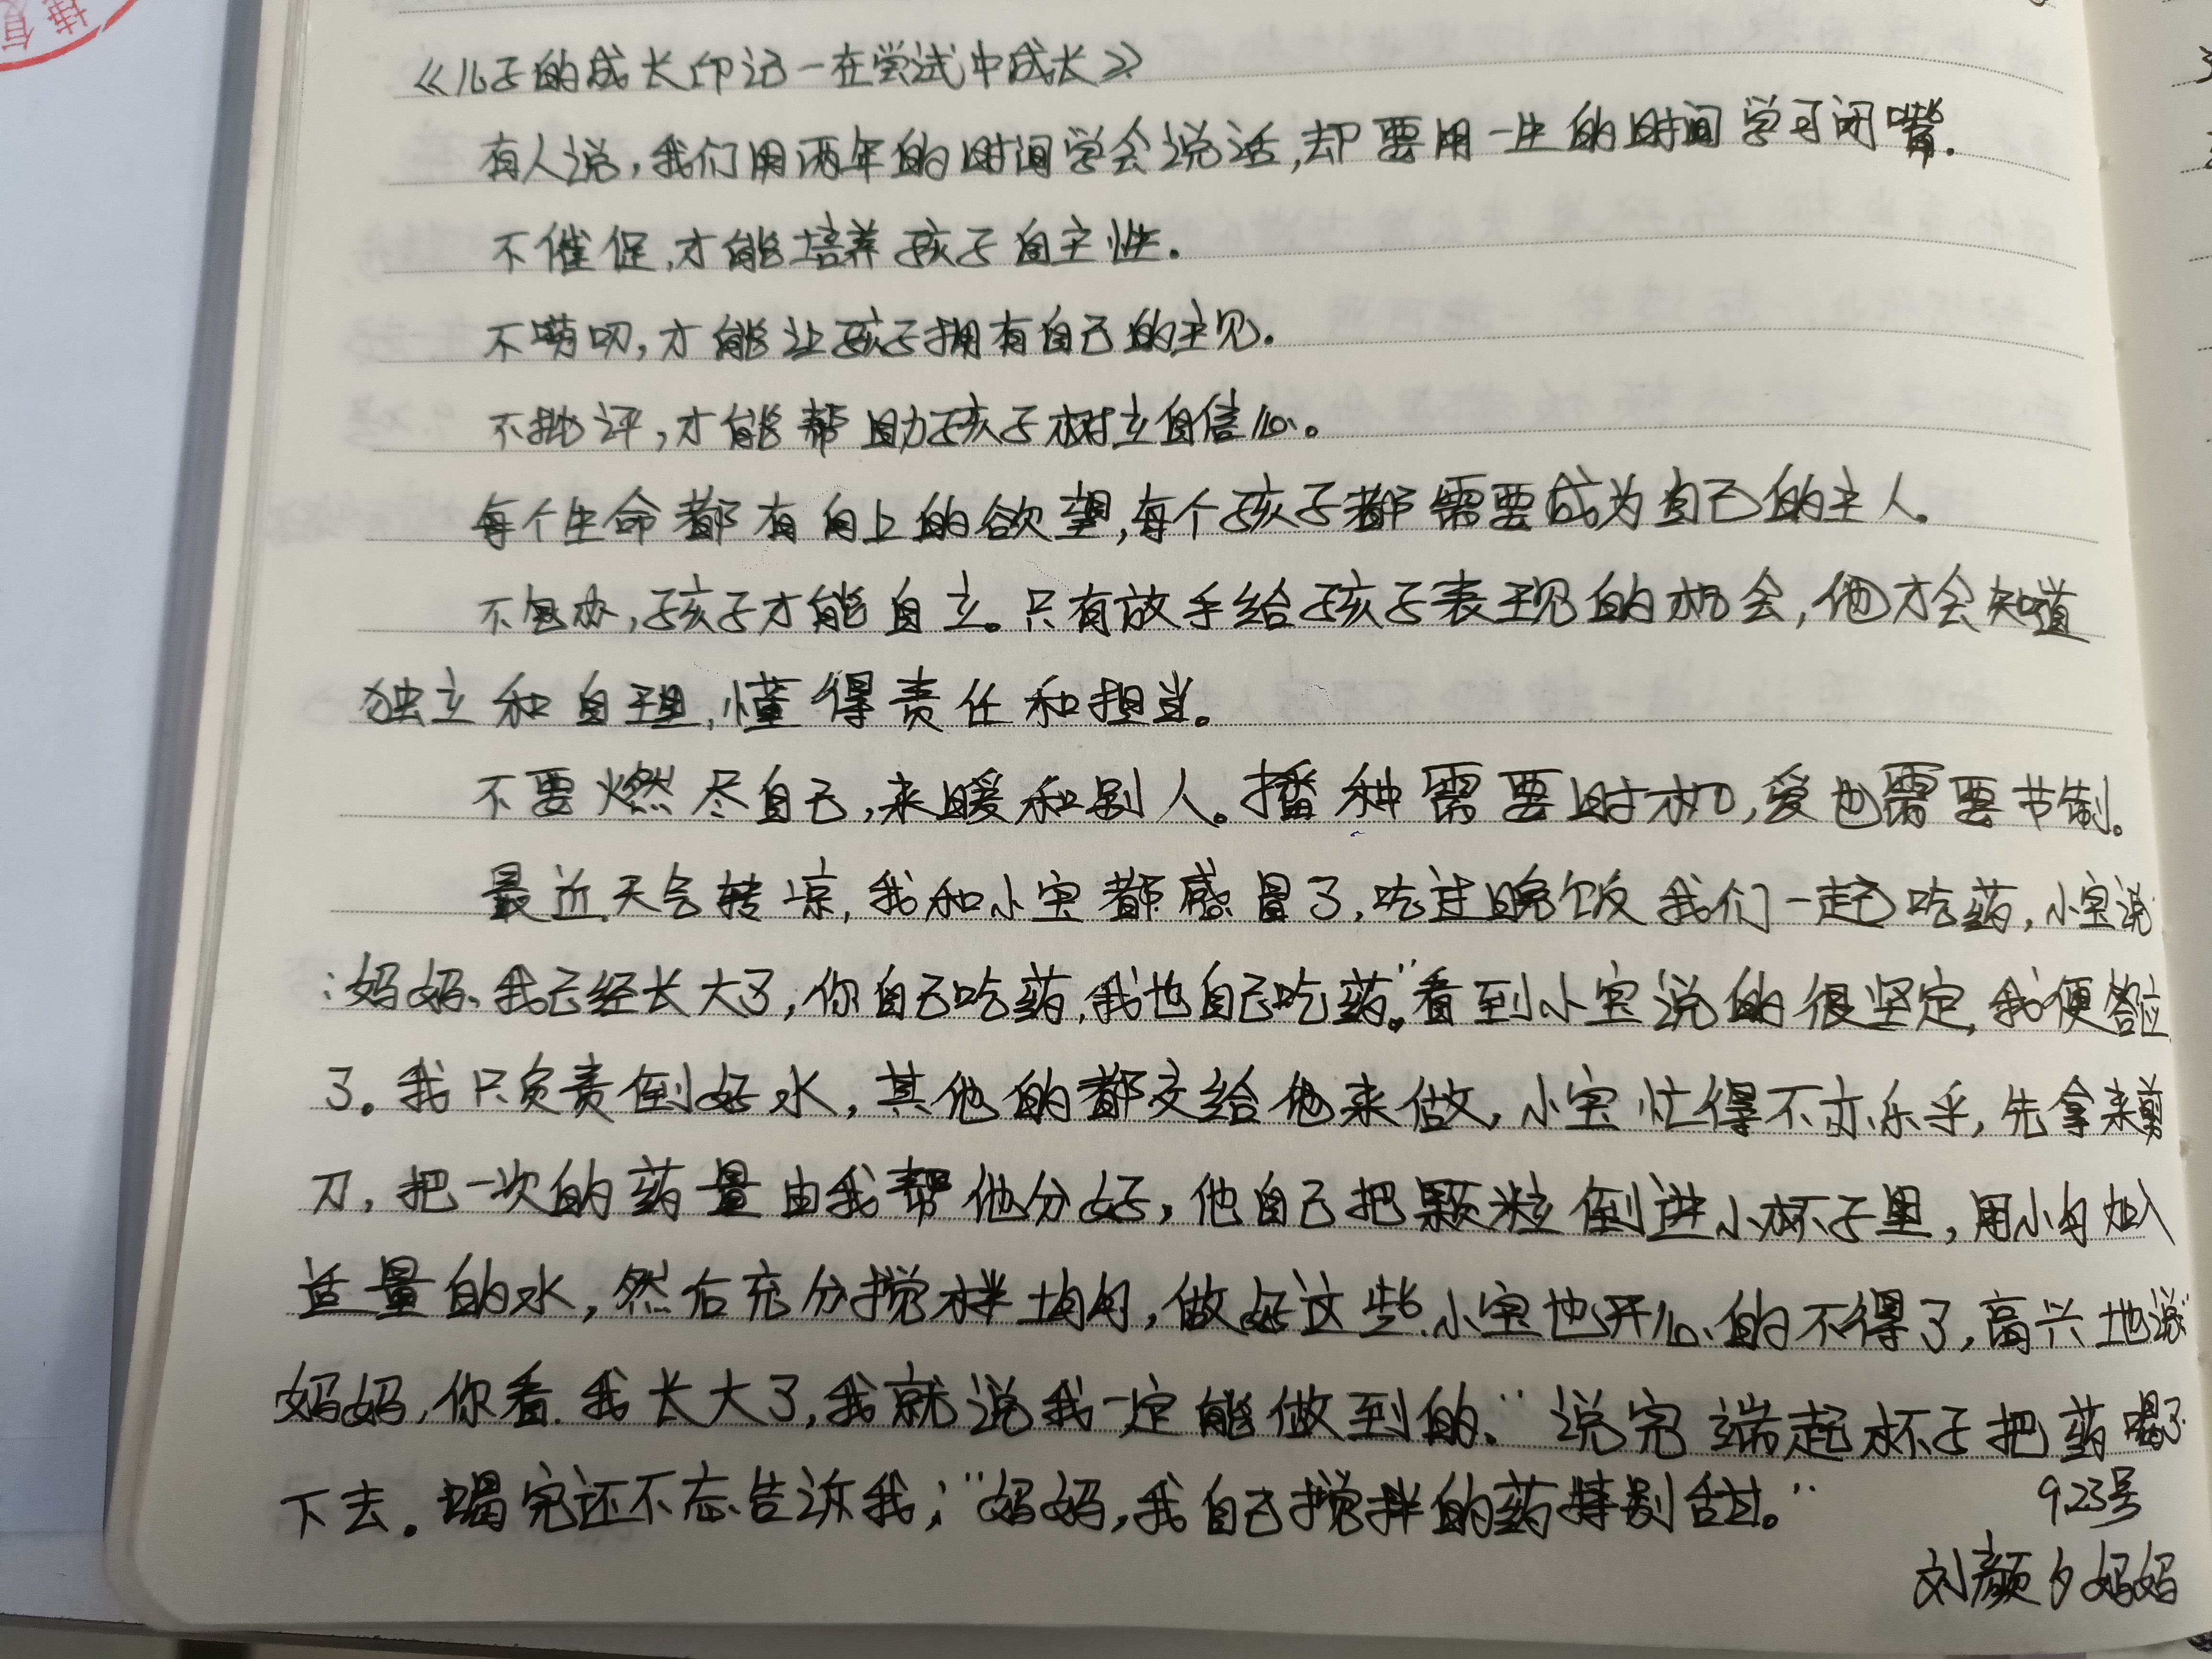 《儿子的成长印记一在尝试中成长》
有人说,我们用两年的时间学会说话,却要用一生的时间学习闭嘴.
不催促,才能培养孩子自主性.
不唠叨,才能让孩子拥有自己的主见.
不批评,才能帮助孩子树立自信心。
每个生命都有向上的欲望,每个孩子都需要成为自己的主人。
不包办,孩子才能自立。只有放手给孩子表现的机会,他才会知道
独立和自理,懂得责任和担当。
不要燃尽自己,来暖和别人。播种需要时机,爱也需要节制。
最近天气转凉,我和小宝都感冒了,吃过晚饭我们一起吃药,小宝说
:妈妈、我已经长大了,你自己吃药,我也自己吃药。"看到小宝说的很坚定,我便答应
了。我只负责倒好水,其他的都交给他来做,小宝忙得不亦乐乎,先拿来剪
刀,把一次的药量由我帮他分好,他自己把颗粒倒进小杯子里,用小勺加入
适量的水,然后充分搅拌均匀,做好这些,小宝也开心的不得了,高兴地说"
妈妈,你看.我长大了,我就说我一定能做到的."说完端起杯子把药喝了
下去。喝完还不忘告诉我;"妈妈,我自己搅拌的药特别甜。"
9.23号
刘颜夕妈妈